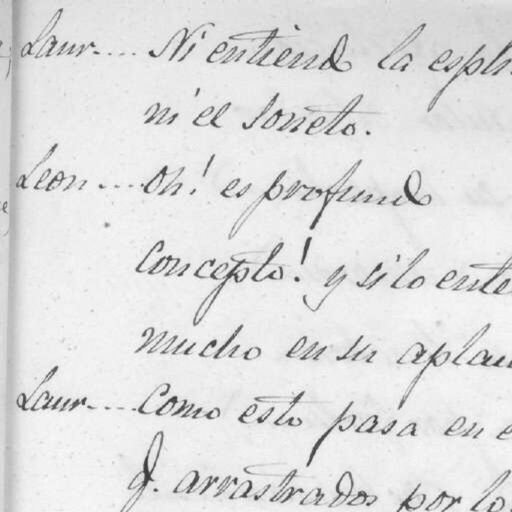 Laur.... Ni entiendo la espli
ni el soneto.
Leon.... Oh! es profundo
concepto! y si lo ente
mucho en su aplau
Laur.... Como esto pasa en e
J. arrastrados por lo